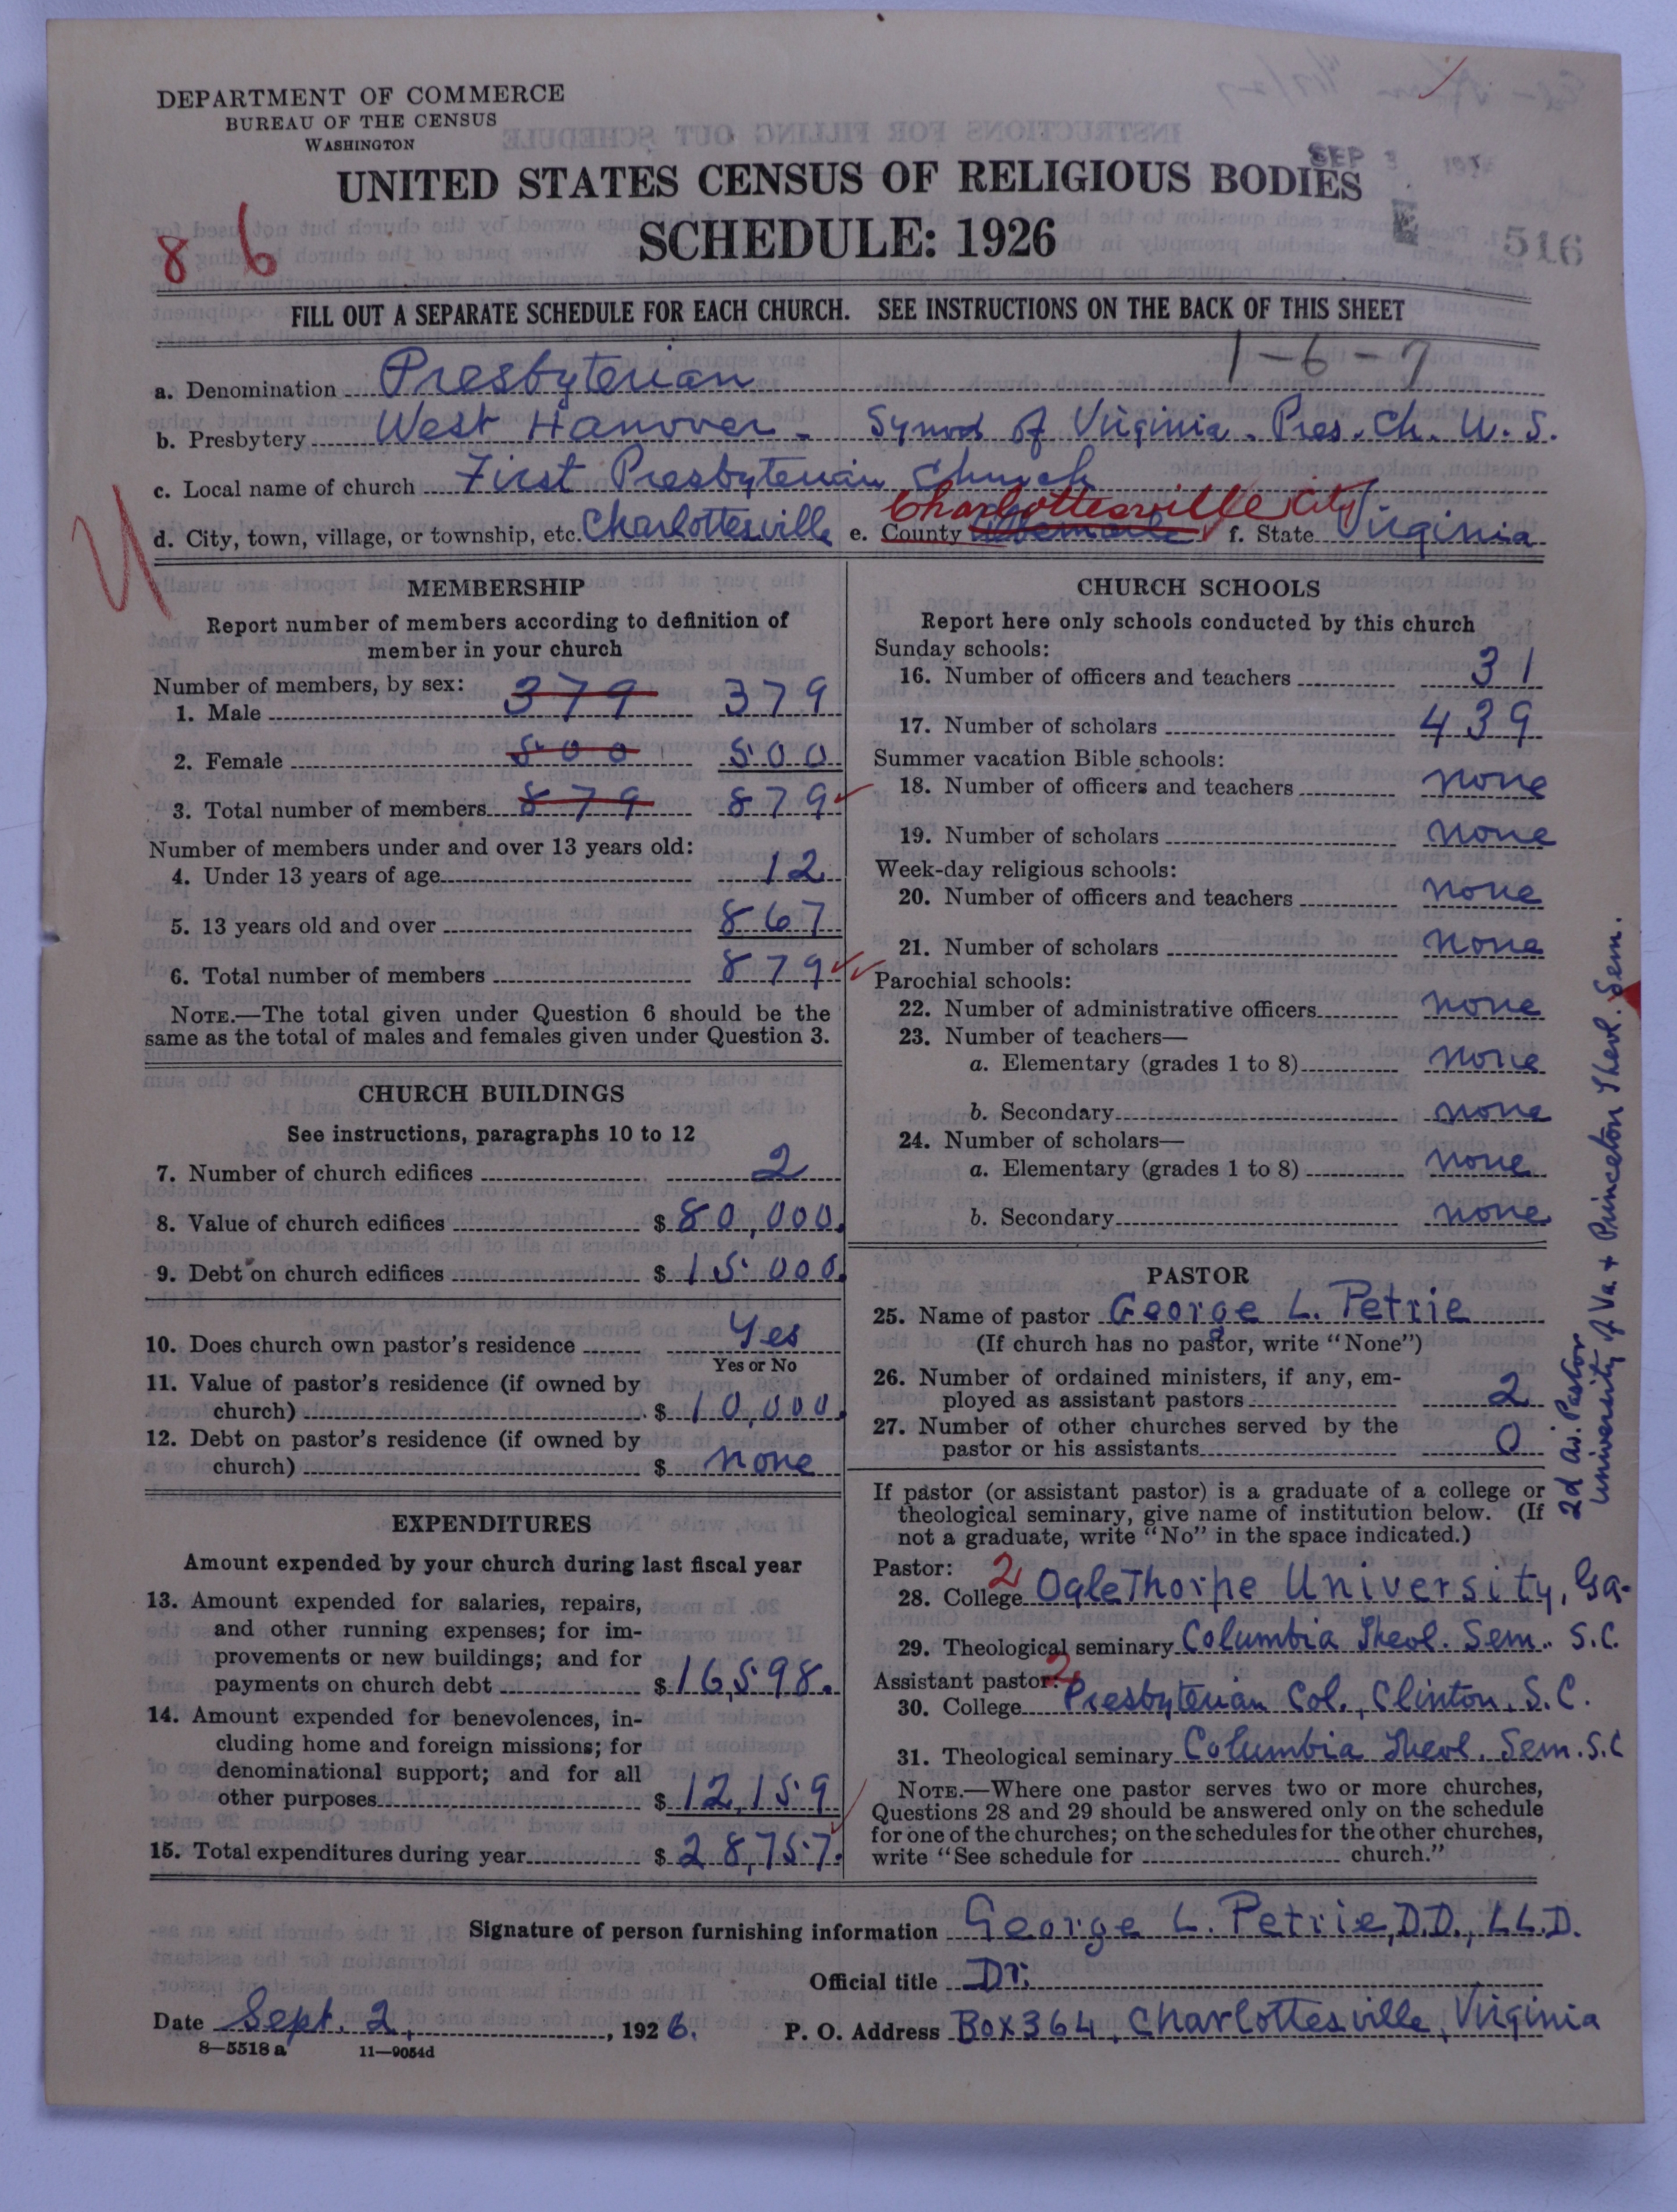 DEPARTMENT OF COMMERCE
BUREAU OF THE CENSUS
WASHINGTON
UNITED STATES CENSUS OF RELIGIOUS BODIES
SEP
SCHEDULE: 1926
8 6
516
FILL OUT A SEPARATE SCHEDULE FOR EACH CHURCH. SEE INSTRUCTIONS ON THE BACK OF THIS SHEET
1-6-7
a. Denomination Presbyterian
b. Presbytery West Hanover - Synod of Virginia. Pres. Ch. U. S.
c. Local name of church First Presbyterian Church
d. City, town, village, or township, etc. Charlottesville e. County Albemarle Charlottesville City f. State Virginia
MEMBERSHIP
Report number of members according to definition of
member in your church
Number of members, by sex:
1. Male 379 379
2. Female 500 500
3. Total number of members 879 879
Number of members under and over 13 years old:
4. Under 13 years of age 12
5. 13 years old and over 867
6. Total number of members 879
NOTE.—The total given under Question 6 should be the
same as the total of males and females given under Question 3.
CHURCH BUILDINGS
See instructions, paragraphs 10 to 12
7. Number of church edifices 2
8. Value of church edifices $ 80,000.
9. Debt on church edifices $ 15 000.
10. Does church own pastor's residence Yes
Yes or No
11. Value of pastor's residence (if owned by
church) $ 10,000.
12. Debt on pastor's residence (if owned by
church) $ none
EXPENDITURES
Amount expended by your church during last fiscal year
13. Amount expended for salaries, repairs,
and other running expenses; for im-
provements or new buildings; and for
payments on church debt $ 16,598.
14. Amount expended for benevolences, in-
cluding home and foreign missions; for
denominational support; and for all
other purposes $ 12,159
15. Total expenditures during year $ 28,757.
CHURCH SCHOOLS
Report here only schools conducted by this church
Sunday schools:
16. Number of officers and teachers 31
17. Number of scholars 439
Summer vacation Bible schools:
18. Number of officers and teachers none
19. Number of scholars none
Week-day religious schools:
20. Number of officers and teachers none
21. Number of scholars none
Parochial schools:
22. Number of administrative officers none
23. Number of teachers—
a. Elementary (grades 1 to 8) none
b. Secondary none
24. Number of scholars—
a. Elementary (grades 1 to 8) none
b. Secondary none
PASTOR
25. Name of pastor George L. Petrie
(If church has no pastor, write "None")
26. Number of ordained ministers, if any, em-
ployed as assistant pastors 2
27. Number of other churches served by the
pastor or his assistants 0
If pastor (or assistant pastor) is a graduate of a college or
theological seminary, give name of institution below. (If
not a graduate, write "No" in the space indicated.)
Pastor: 2
28. College OgleThorpe University, Ga.
29. Theological seminary Columbia Theol. Sem. S.C.
Assistant pastor: 2
30. College Presbyterian Col., Clinton, S.C.
31. Theological seminary Columbia Theol. Sem. S.C
NOTE.—Where one pastor serves two or more churches,
Questions 28 and 29 should be answered only on the schedule
for one of the churches; on the schedules for the other churches,
write "See schedule for church."
2d as. Pastor
University of Va + Princeton Theol. Sem.
Signature of person furnishing information George L. Petrie, D.D., LL.D.
Official title Dr.
Date Sept. 2, , 1926. P. O. Address Box 364, Charlottesville, Virginia
8—5518 a 11—9054d